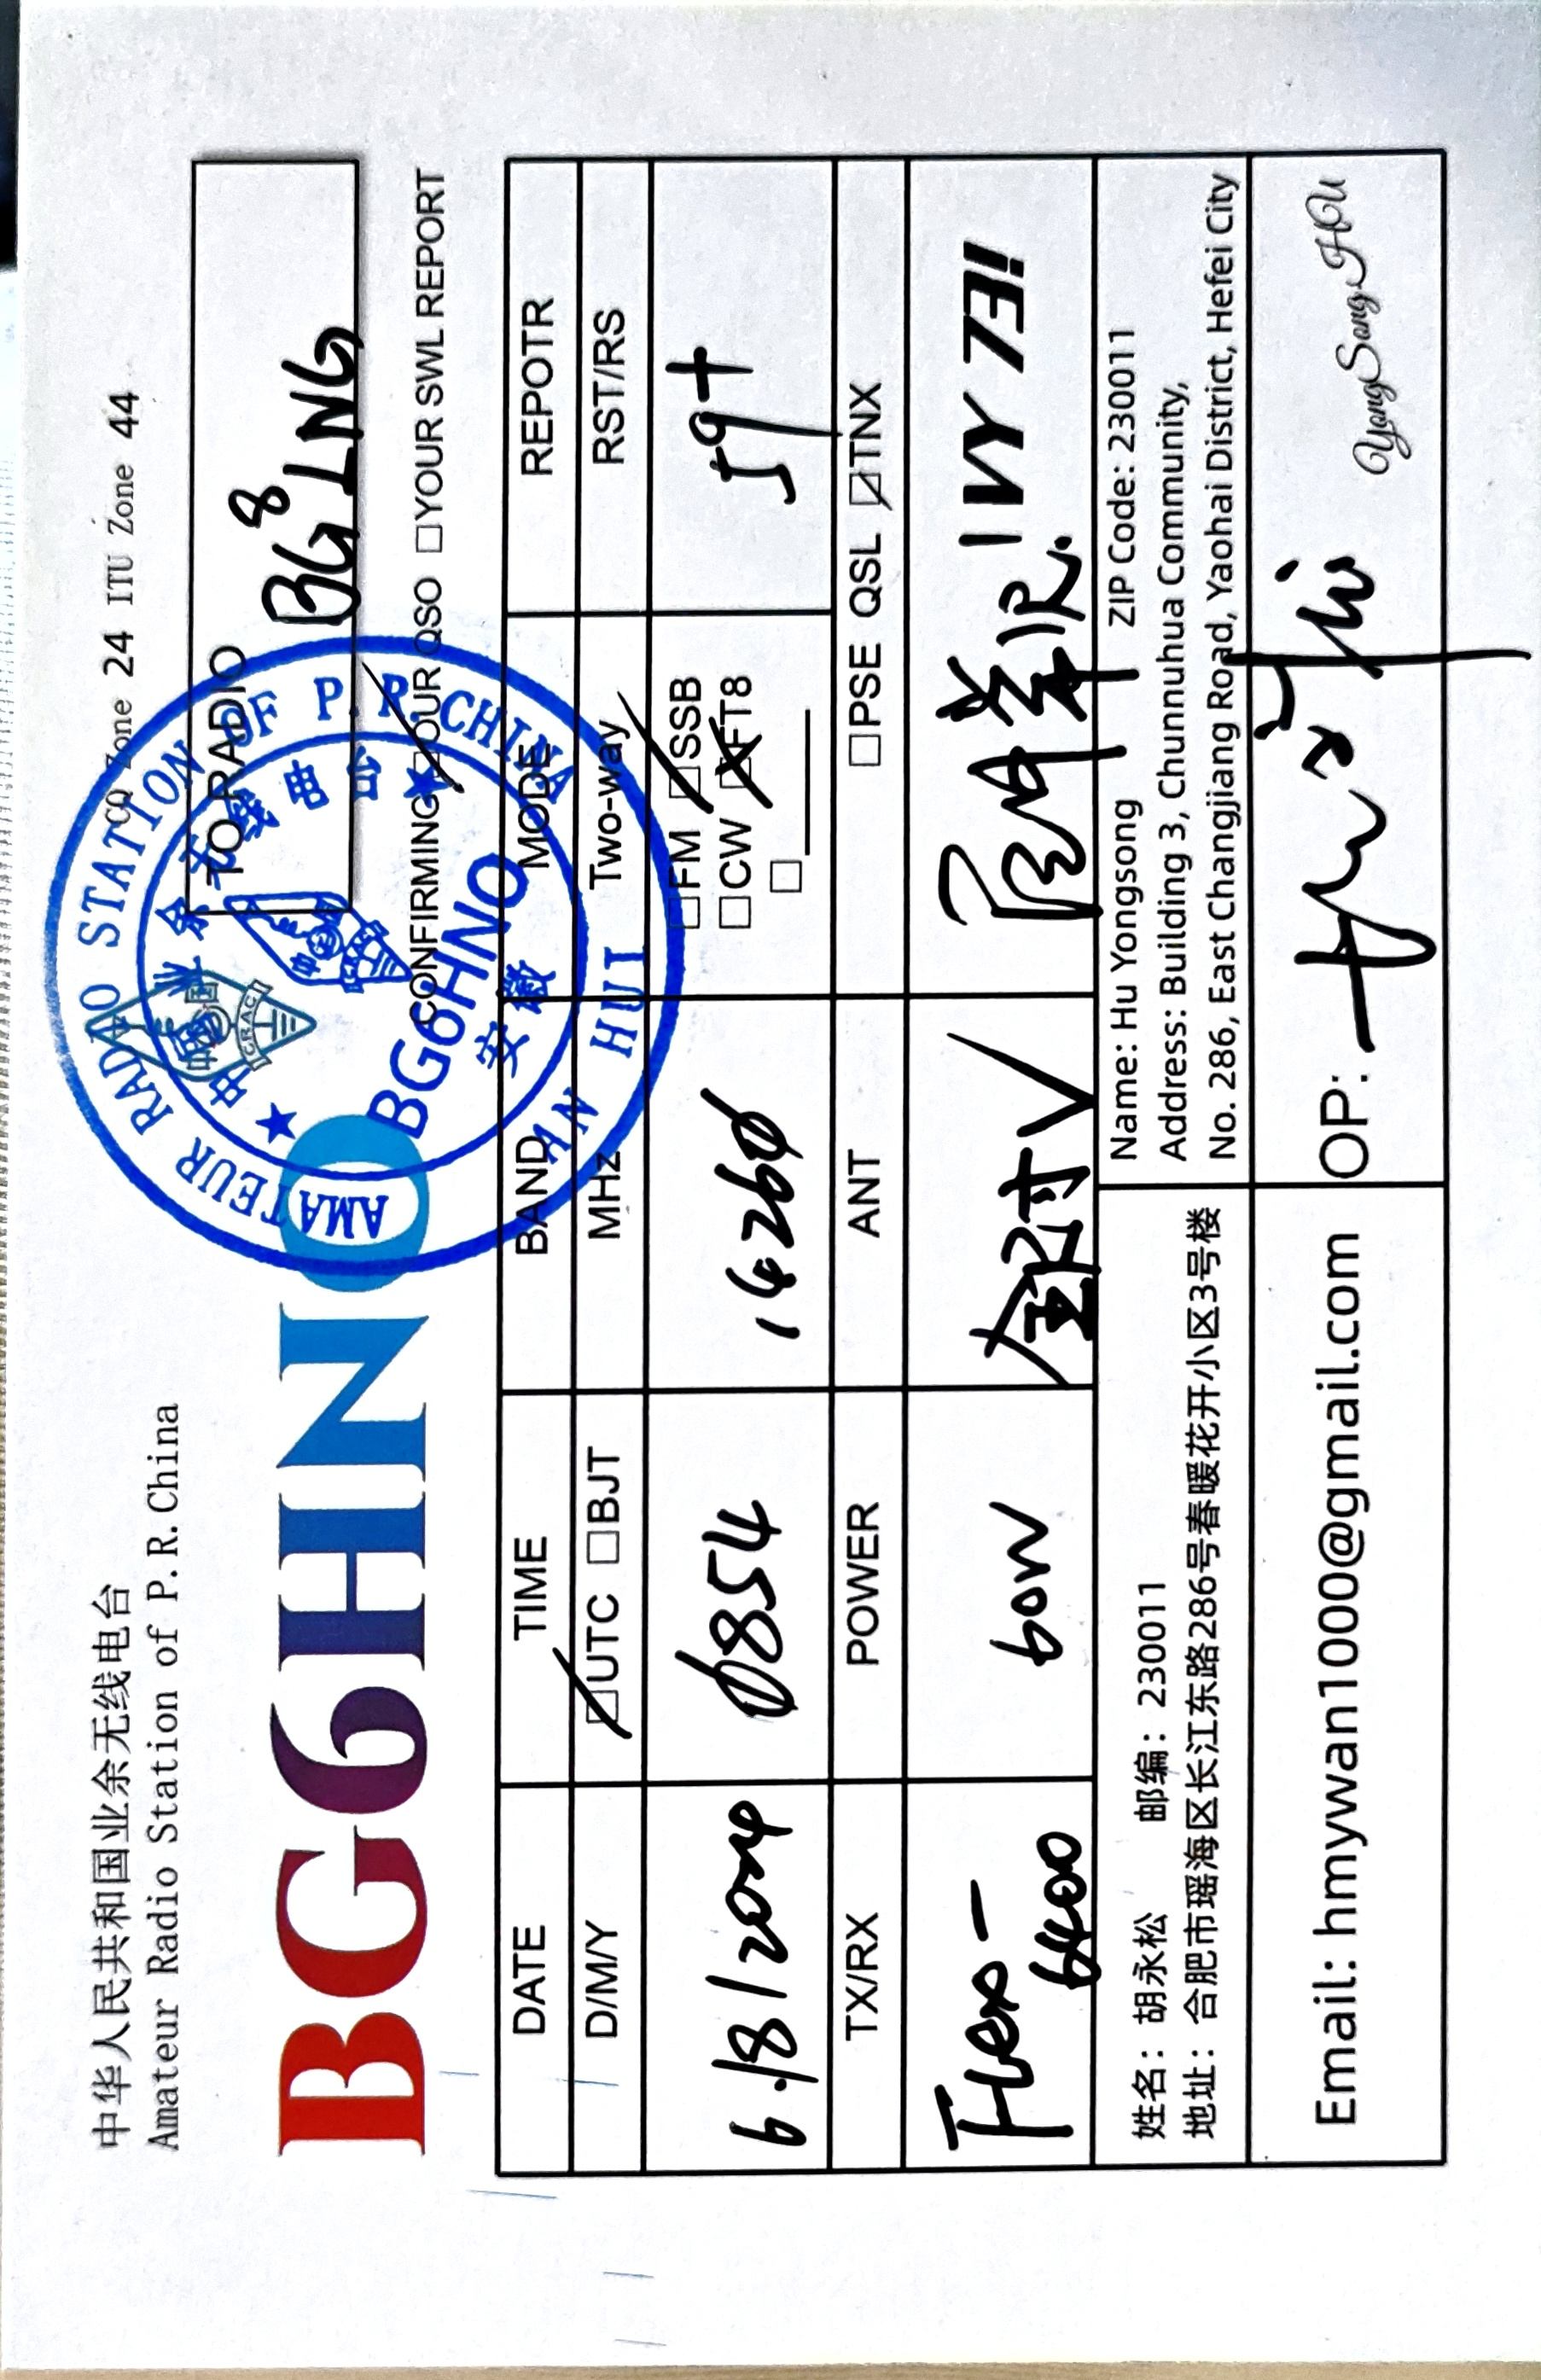 中华人民共和国业余无线电台
Amateur Radio Station of P.R.China
CQ Zone 24 ITU Zone 44
BG6HNO
TO RADIO BG8LNG
CONFIRMING ☑OUR QSO □YOUR SWL REPORT
AMATEUR RADAO STATION OF P.R.CHINA
AN HUI
中国业余无线电台
BG6HNO
安徽
CRAC
DATE TIME BAND MODE REPOTR
D/M/Y ☑UTC □BJT MHz Two-way RST/RS
6/8/2024 0854 14260 □FM ☑SSB 59+
□CW □FT8
□____
TX/RX POWER ANT □PSE QSL ☑TNX
Flex- 60W V 1 VY 73!!
6400
姓名：胡永松 邮编：230011
地址：合肥市瑶海区长江东路286号春暖花开小区3号楼
Name: Hu Yongsong ZIP Code: 230011
Address: Building 3, Chunnuhua Community,
No. 286, East Changjiang Road, Yaohai District, Hefei City
Email: hmywan1000@gmail.com
OP: YongSong HU